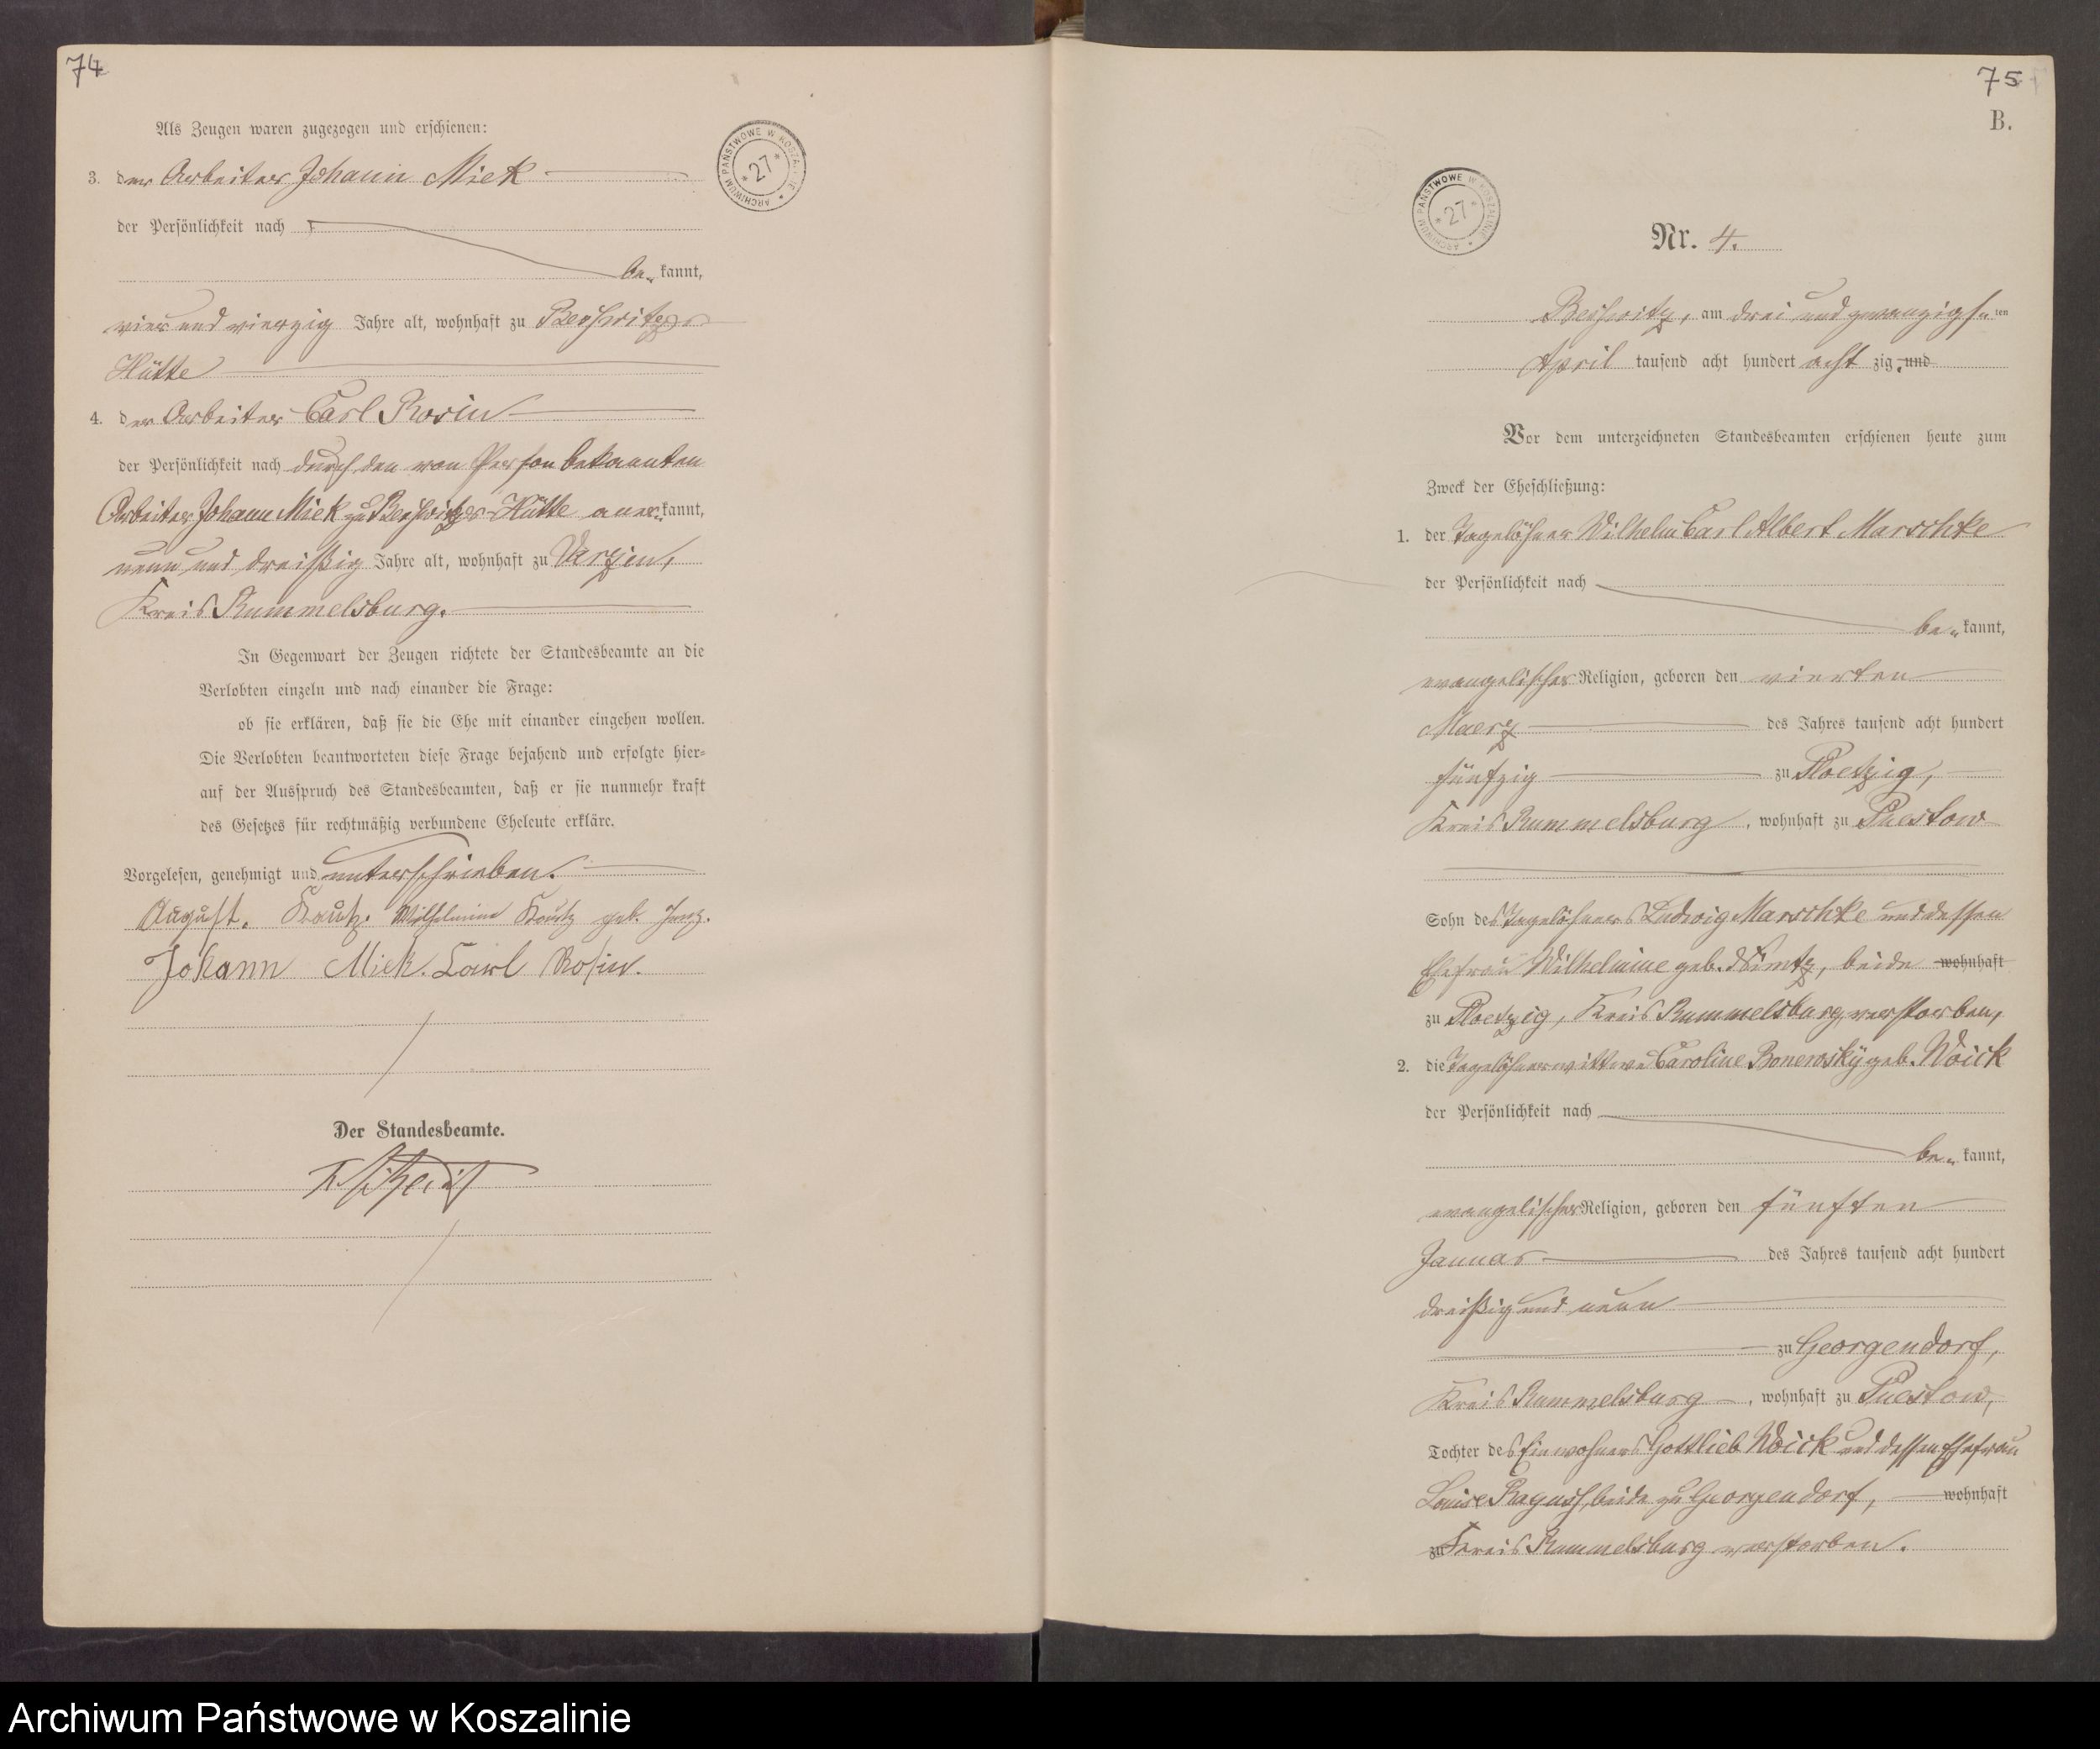 74
Als Zeugen waren zugezogen und erschienen:
3. der Arbeiter Johann Miek
der Persönlichkeit nach
be- kannt,
vier und vierzig Jahre alt, wohnhaft zu Beßwitzer
Hütte
4. der Arbeiter Carl Rosin
der Persönlichkeit nach durch den von Person bekannten
Arbeiter Johann Miek zu Beßwitzer-Hütte aner- kannt,
neun und dreißig Jahre alt, wohnhaft zu Varzin,
Kreis Rummelsburg.
In Gegenwart der Zeugen richtete der Standesbeamte an die
Verlobten einzeln und nach einander die Frage:
ob sie erklären, daß sie die Ehe mit einander eingehen wollen.
Die Verlobten beantworteten diese Frage bejahend und erfolgte hier-
auf der Ausspruch des Standesbeamten, daß er sie nunmehr kraft
des Gesetzes für rechtmäßig verbundene Eheleute erkläre.
Vorgelesen, genehmigt und unterschrieben.
August. Kautz. Wilhelmine Kautz geb.
Johann Miek. Carl Rosin.
Der Standesbeamte.
ARCHIWUM PAŃSTWOWE W KOSZALINIE * 27 *
75
B.
ARCHIWUM PAŃSTWOWE W KOSZALINIE * 27 *
Nr. 4.
Beßwitz, am drei und zwanzigsten
April tausend acht hundert acht zig und
Vor dem unterzeichneten Standesbeamten erschienen heute zum
Zweck der Eheschließung:
1. der Tagelöhner Wilhelm Carl Albert Marschke
der Persönlichkeit nach
be- kannt,
evangelischer Religion, geboren den vierten
Maerz des Jahres tausend acht hundert
fünfzig zu Ploetzig,
Kreis Rummelsburg, wohnhaft zu Puestow
Sohn des Tagelöhners Ludwig Marschke und dessen
Ehefrau Wilhelmine geb. beide wohnhaft
zu Ploetzig, Kreis Rummelsburg verstorben,
2. die Tagelöhnerwittwe Caroline Bonewsky geb. Woick
der Persönlichkeit nach
be- kannt,
evangelischer Religion, geboren den fünften
Januar des Jahres tausend acht hundert
dreißig und neun
zu Georgendorf,
Kreis Rummelsburg, wohnhaft zu Puestow,
Tochter des Einwohners Gottlieb Woick und dessen Ehefrau
Louise beide zu Georgendorf, wohnhaft
zu Kreis Rummelsburg verstorben.
Archiwum Państwowe w Koszalinie